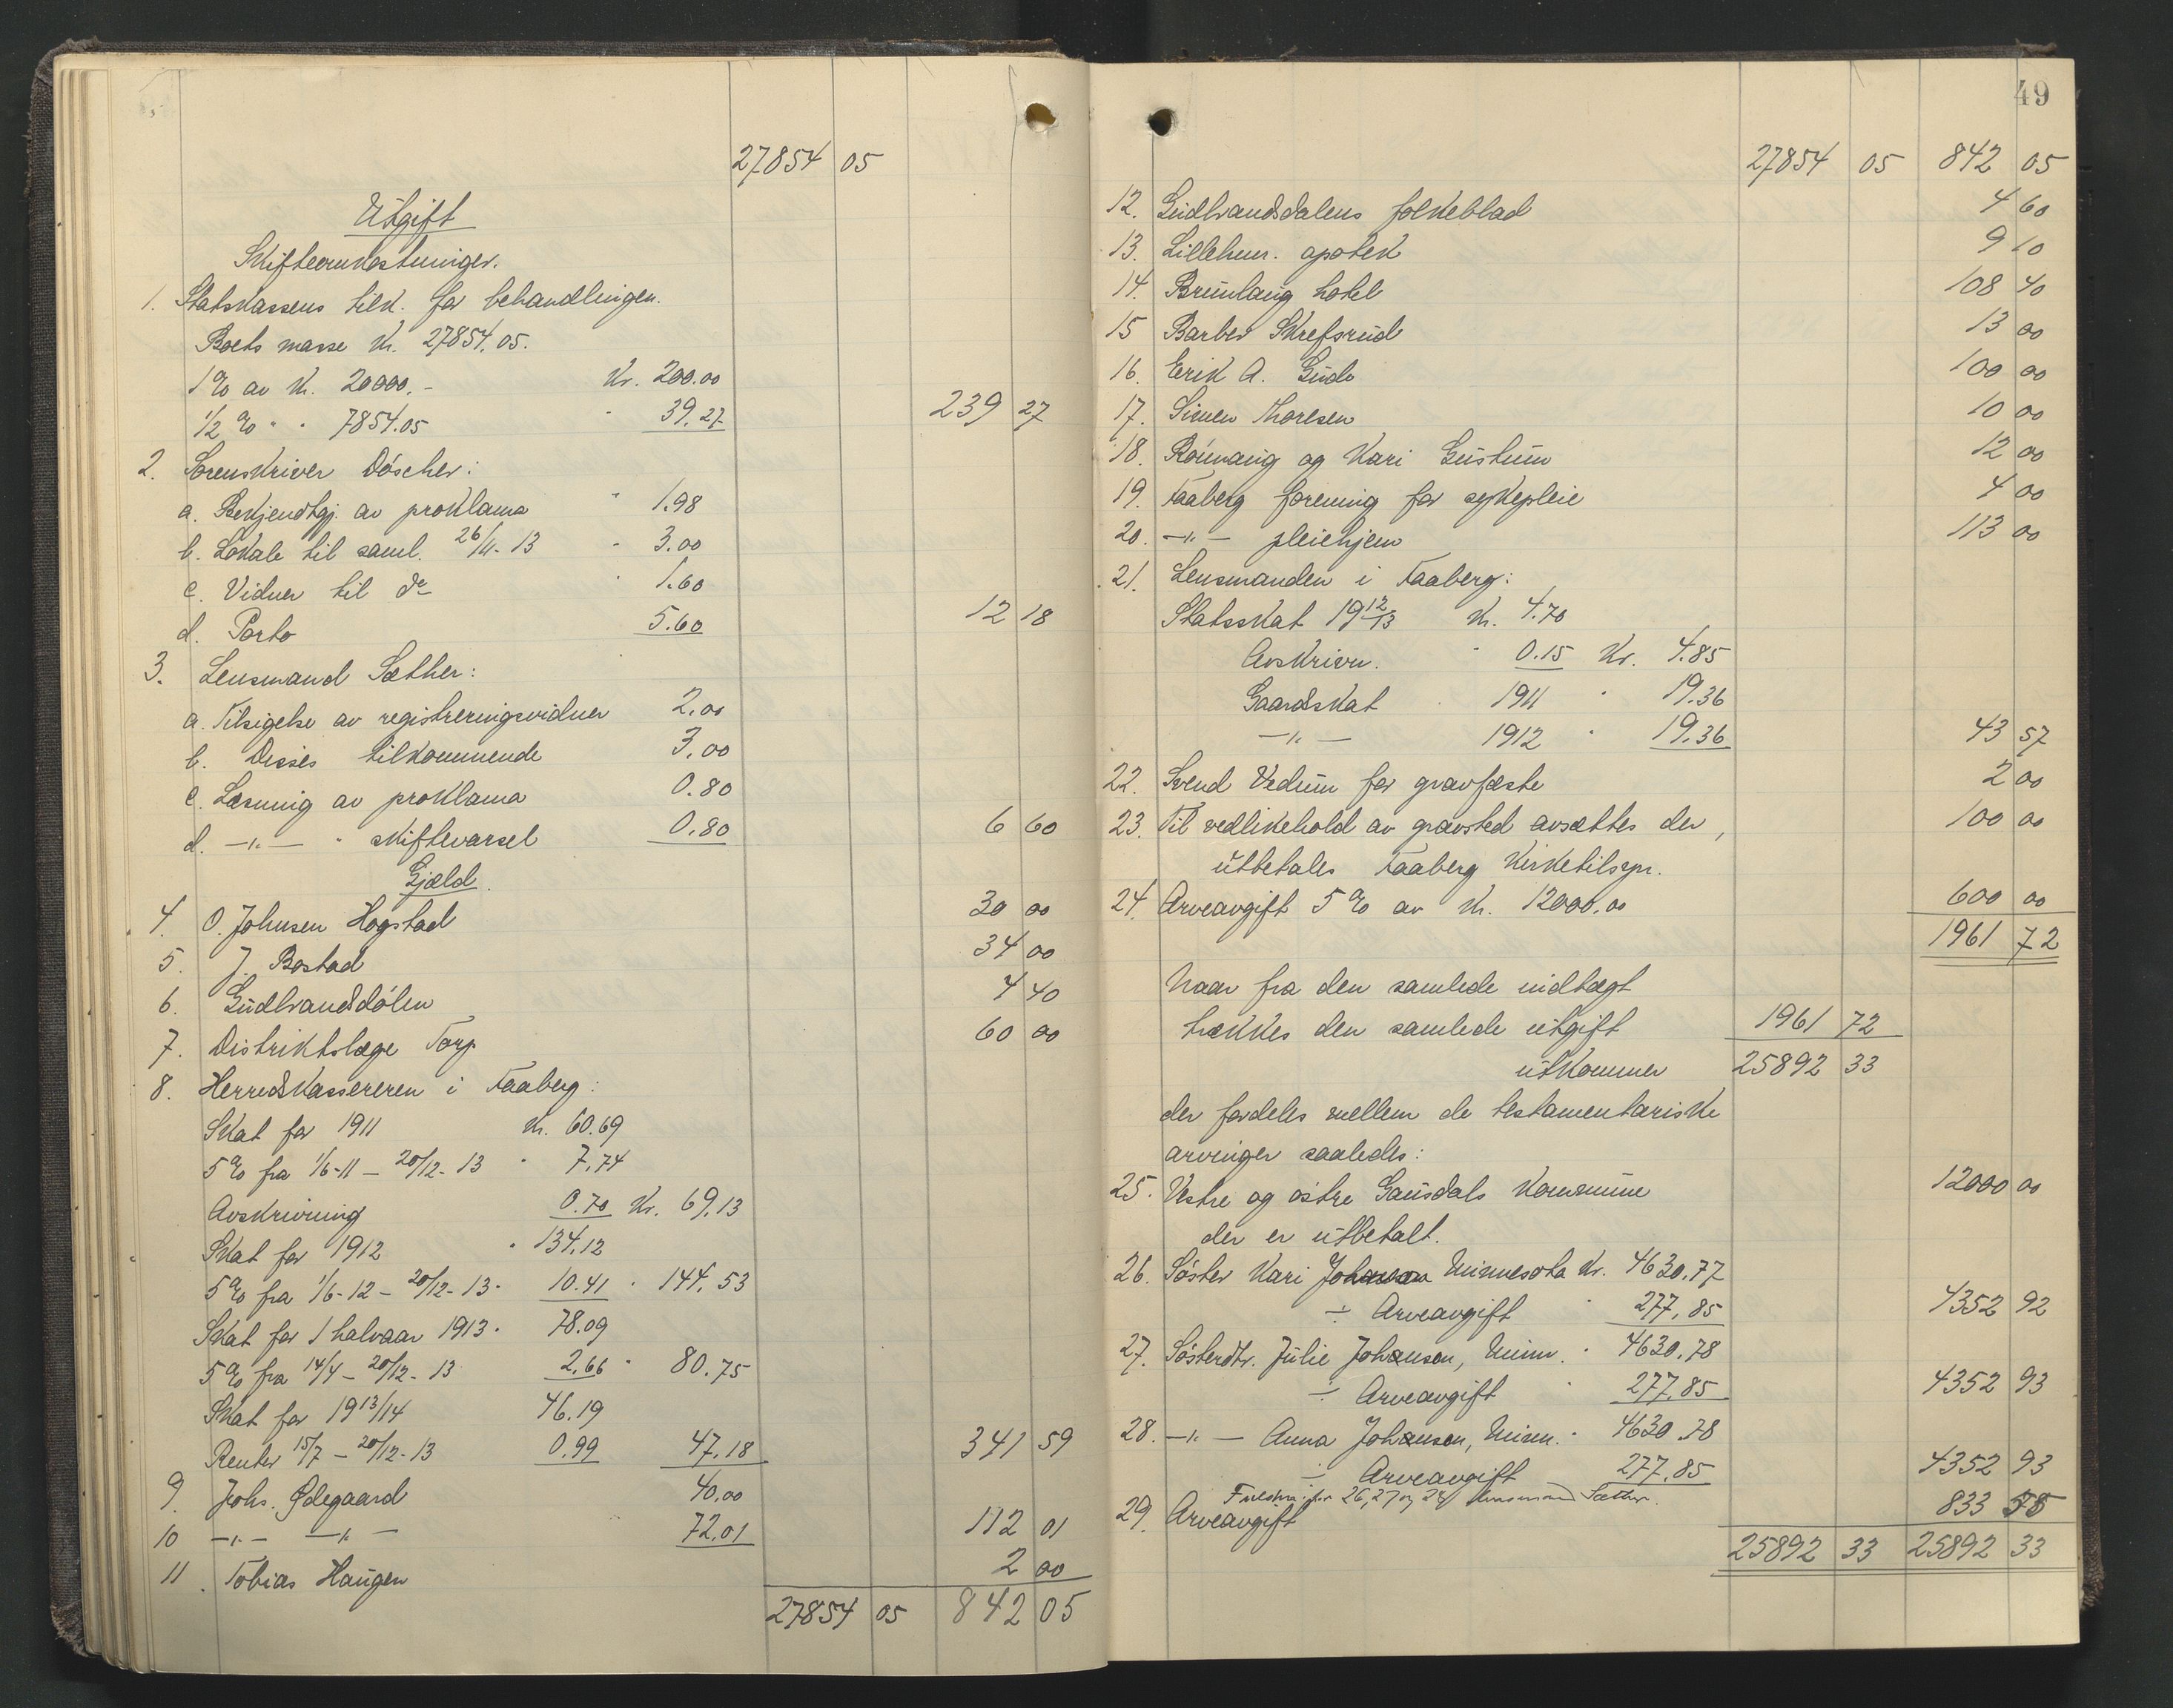 27854 05
Utgift
Skifteomkostninger.
1. Statskassens tilk. for behandlingen.
Boets masse Kr. 27854.05.
1 % av Kr. 20000.- Kr. 200.00
1/2 % " " 7854.05 " 39.27 239 27
2. Sorenskriver Döscher:
a. Bekjendtgj. av proklama " 1.98
b. Lokale til saml. 26/11-13 " 3.00
c. Vidner til do " 1.60
d. Porto 5.60 12 18
3. Lensmand Sæther:
a. Tilsigelse av registreringsvidner 2.00
b. Disses tilkommende 3.00
c. Læsning av proklama 0.80
d. -"- " skiftevarsel 0.80 6 60
Gjæld.
4. O. Johnsen Hogstad 30 00
5. J. Bostad 34 00
6. Gudbrandsdölen 4 40
7. Distriktslæge Torp 60 00
8. Herredskassereren i Faaberg:
Skat for 1911 Kr. 60.69
5 % fra 1/6-11 - 20/12-13 " 7.74
Avskrivning 0.70 Kr. 69.13
Skat for 1912 " 134.12
5 % fra 1/6-12 - 20/12-13 " 10.41 " 144.53
Skat for 1 halvaar 1913 " 78.09
5 % fra 14/4 - 20/12-13 2.66 " 80.75
Skat for 1913/14 46.19
Renter 15/7 - 20/12-13 0.99 47.18 341 59
9. Johs. Ødegaard 40.00
10 -"- -"- 72.01 112 01
11. Tobias Haugen 2 00
27854 05 842 05
49
27854 05 842 05
12. Gudbrandsdalens folkeblad 4 60
13. Lilleham. apotek 9 10
14. Breiulaug hotel 108 40
15 Barber Skrefsrud 13 00
16. Erik A. 100 00
17. Simen Thoresen 10 00
18. og Kari 12 00
19. Faaberg forening for sykepleie 4 00
20. -"- pleiehjem 113 00
21. Lensmanden i Faaberg:
Statsskat 1912/13 Kr. 4.70
Avskrivn. " 0.15 Kr. 4.85
Gaardskat 1911 " 19.36
-"- 1912 " 19.36 43 57
22. Svend Vedum for gravfæste 2 00
23. Til vedlikehold av gravsted avsættes der, 100 00
utbetales Faaberg Kirketilsyn.
24. Arveavgift 5 % av Kr. 12000.00 600 00
1961 72
Naar fra den samlede indtægt
trækkes den samlede utgift 1961 72
utkommer 25892 33
der fordeles mellem de testamentariske
arvinger saaledes:
25. Vestre og östre Gausdals Kommune 12000 00
der er utbetalt.
26. Söster Kari Johanson Minnesota Kr. 4630.77
÷ Arveavgift " 277.85 4352 92
27. Sösterdtr. Julie Johanson, Minn. " 4630.78
÷ Arveavgift " 277.85 4352 93
28. -"- Anna Johanson, Minn. " 4630.78
÷ Arveavgift 277.85 4352 93
for 26, 27 og 28 lensmand Sæther.
29. Arveavgift 833 55
25892 33 25892 33